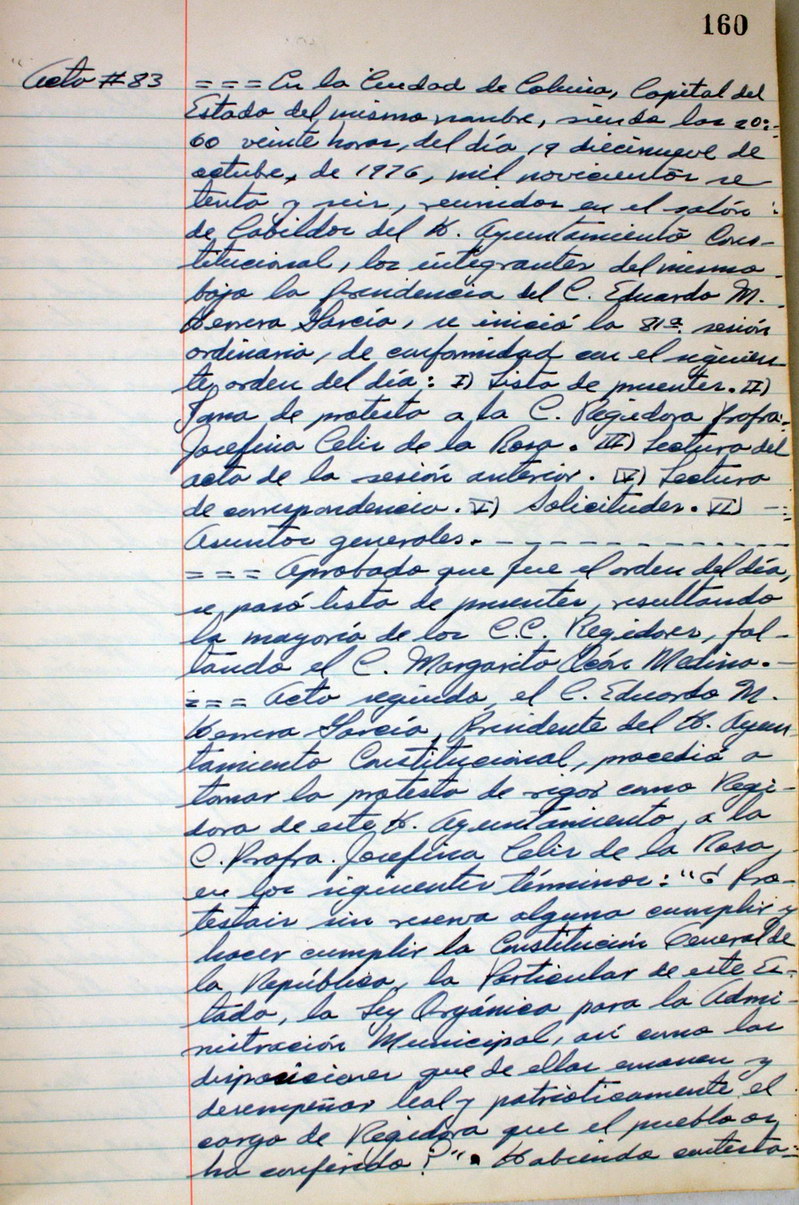 160
Acta # 83
= = = En la Ciudad de Colima, Capital del
Estado del mismo nombre, siendo las 20:-
60 veinte horas, del día 19 diecinueve de
octubre, de 1976, mil novecientos se
tenta y seis, reunidos en el salón :
de Cabildos del H. Ayuntamiento Cons-
titucional, los integrantes del mismo
bajo la presidencia del C. Eduardo M.
Herrera García, se inició la 81a. sesión
ordinaria, de conformidad con el siguien
te, orden del día: I) Lista de presentes. II)
Toma de protesta a la C. Regidora Profra.
Josefina Celis de la Rosa. III) Lectura del
acta de la sesión anterior. IV) Lectura
de correspondencia. V) Solicitudes. VI) --
Asuntos generales. - - - - - - - - - - - -
= = = Aprobado que fue el orden del día,
se pasó lista de presentes, resultando
la mayoría de los C.C. Regidores, fal-
tando el C. Margarito León Medina. -
= = = Acto seguido, el C. Eduardo M.
Herrera García, Presidente del H. Ayun-
tamiento Constitucional, procedió a
tomar la protesta de rigor como Regi-
dora de este H. Ayuntamiento, a la
C. Profra. Josefina Celis de la Rosa,
en los siguientes términos: "¿ Pro-
testais sin reserva alguna cumplir y
hacer cumplir la Constitución General de
la República, la Particular de este Es-
tado, la Ley Orgánica para la Admi-
nistración Municipal, así como las
disposiciones que de ellas emanen y
desempeñar leal y patrióticamente el
cargo de Regidora que el pueblo os
ha conferido ?". Habiendo contesta-